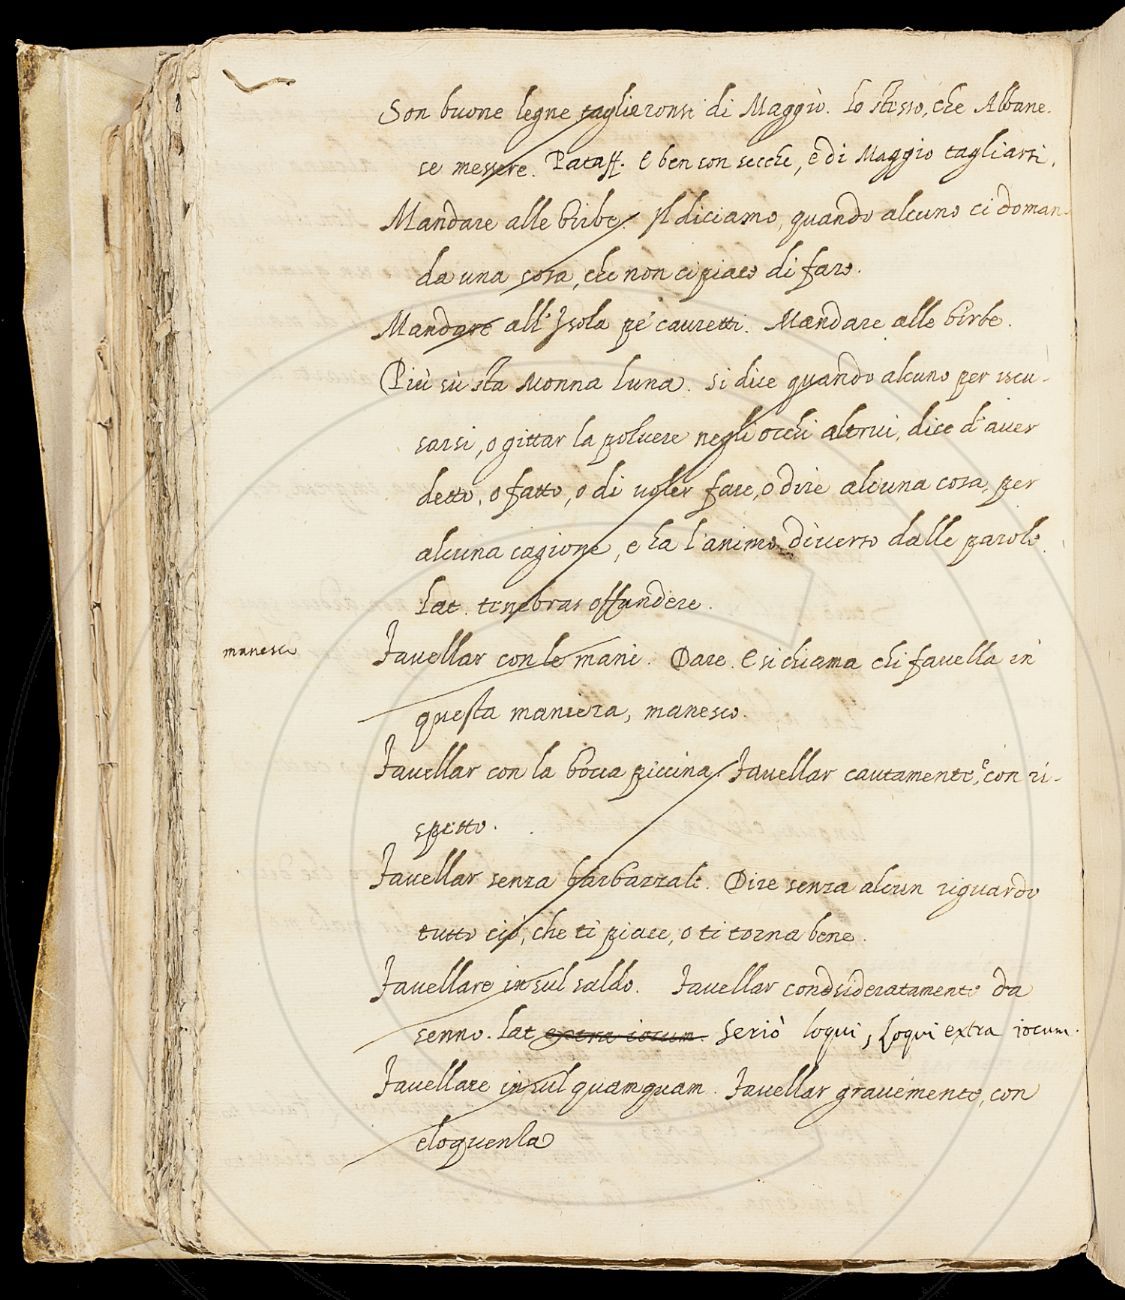 Son buone legne taglieronsi di Maggio. Lo stesso, che Albane-
se messere. Pataff. E ben son secche, e di Maggio tagliarsi.
Mandare alle birbe. Il diciamo, quando alcuno ci doman-
da una cosa, che non ci piace di fare.
Mandare all'Isola pe' cauretti. Mandare alle birbe.
Più sù sta Monna Luna. Si dice quando alcuno per iscu-
sarsi, o gittar la poluere negli occhi altrui, dice d'auer
detto, o fatto, o di uoler fare, o dire alcuna cosa, per
alcuna cagione, e ha l'animo diuerso dalle parole.
Lat. tenebras offundere.
manesco
Fauellar con le mani. Dare. E si chiama chi fauella in
questa maniera, manesco.
Fauellar con la bocca piccina. Fauellar cautamente, e con ri-
spetto.
Fauellar senza barbazzale. Dire senza alcun riguardo
tutto ciò, che ti piace, o ti torna bene.
Fauellare in sul saldo. Fauellar condsideratamente da
senno. Lat. extra iocum. seriò loqui, Loqui extra iocum.
Fauellare in sul quamquam. Fauellar grauemente, con
eloquenza